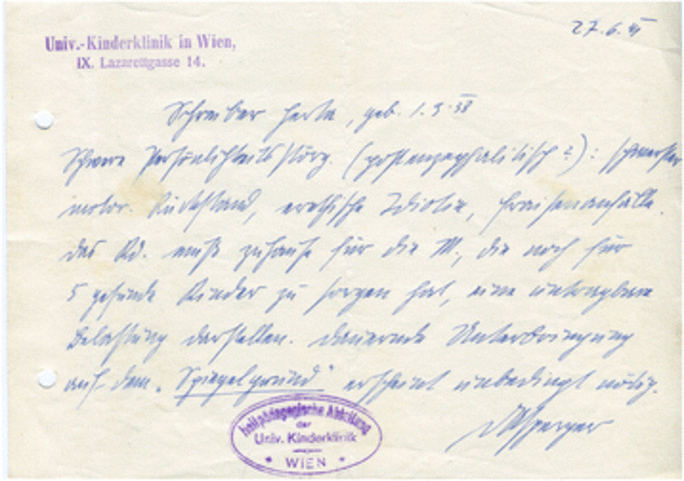 27.6.41
Univ.-Kinderklinik in Wien,
IX. Lazarettgasse 14.
Schreiber Herta, geb. 1.9.38
Schwere Persönlichkeitsstörg. (postenzephalitisch?): schwerster
motor. Rückstand, erethische Idiotie, Fraisenanfälle.
das Kd. muß zuhause für die M., die noch für
5 gesunde Kinder zu sorgen hat, eine untragbare
Belastung darstellen. Dauernde Unterbringung
auf dem „Spiegelgrund“ erscheint unbedingt nötig.
DrAsperger
Heilpädagogische Abteilung
der
Univ. Kinderklinik
* WIEN *